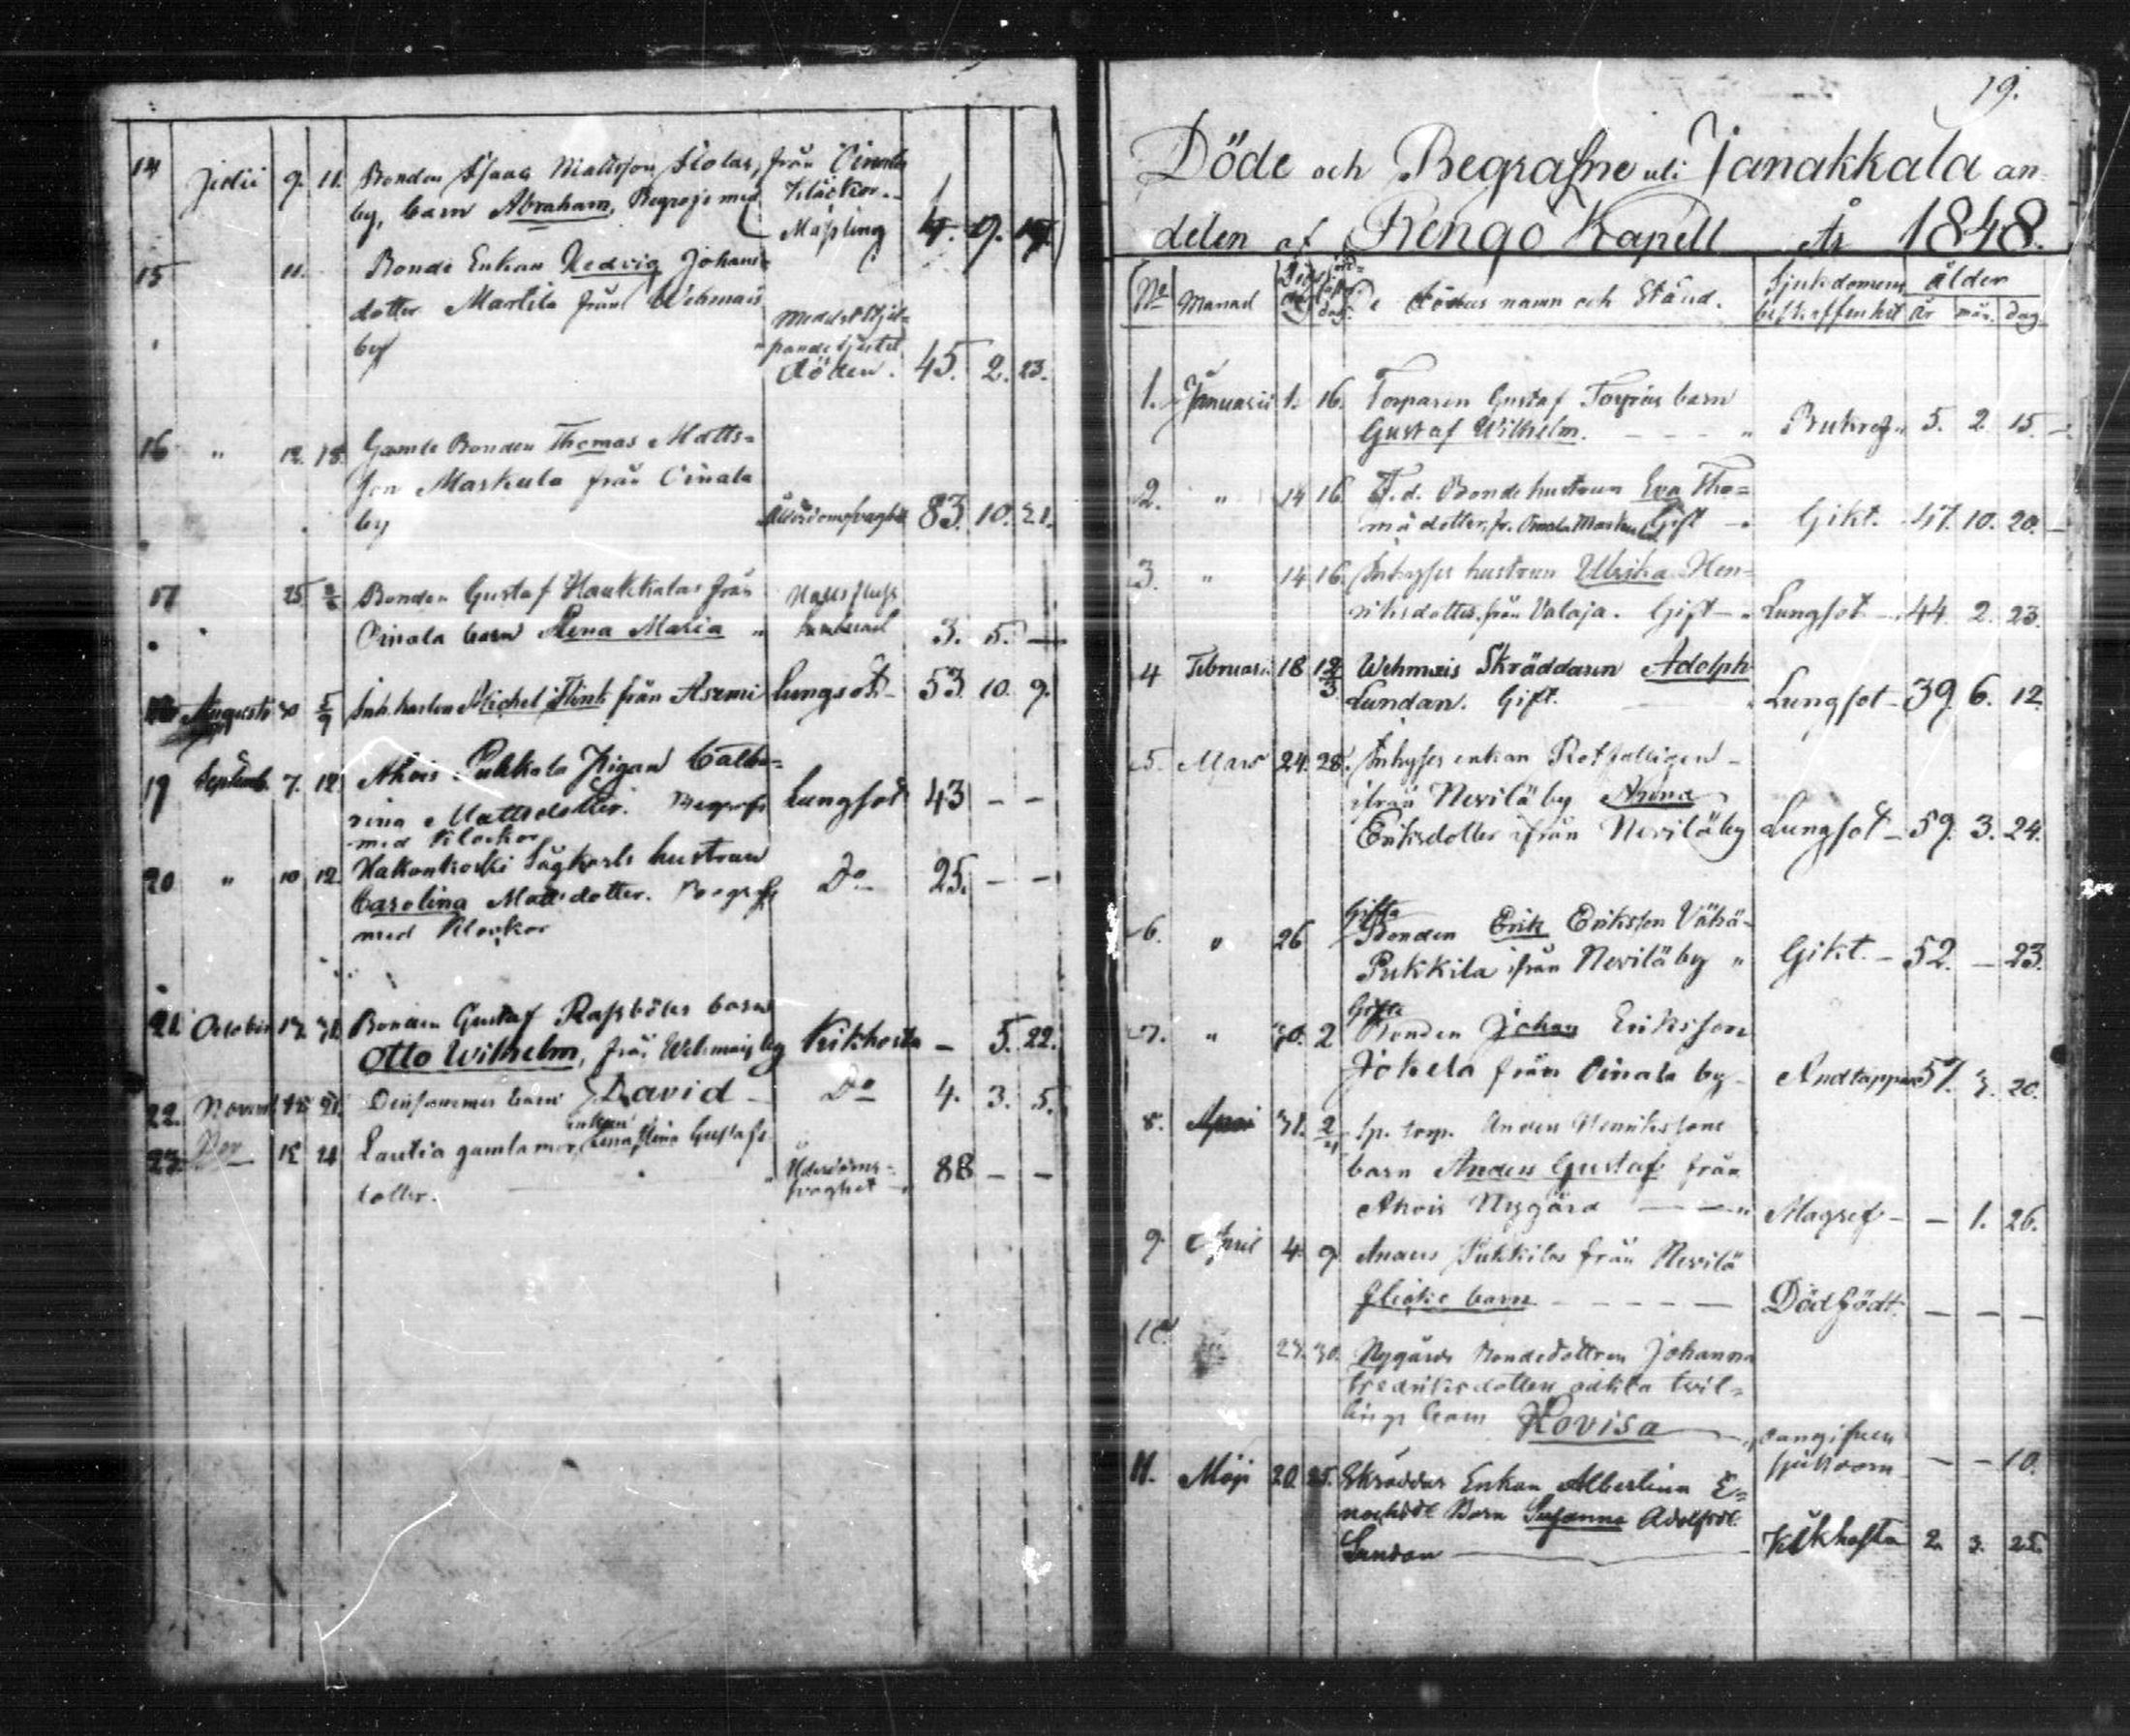 14 Julii 9. 11. Bonden Isaac Mattsson Iiolas, från Oinala
by, barn Abraham, Begrafs med Klåckor.
Mäsling 4. 9. 17.
15 11. Bonde Enkan Hedvig Johans-
dotter Martila från Wehmais
by
döden. 45. 2. 23.
16 " 12. 18. Gamle Bonden Thomas Matts-
son Markula från Oinala
by Ålderdomsvaghet 83. 10. 21.
17 25 Bonden Gustaf Haukkalas från
Oinala barn Lena Maria " 3. 5. —
Augusti 30 5/9 Inh. karlen Michel Flink från Asemi Lungsot 53 10. 9.
19 Septemb. 7. 12. Ahois Pukkala Pigan Catha-
rina Mattsdotter. Begrofs Lungsot 43 – –
med Klockor
20 " 10 12. Hakankoski Sågkarls hustrun
Carolina Mattsdotter. Begrofs Do 25. – –
med Klockor
21. October 17. 31. Bonden Gustaf Rassböles barn
Otto Wilhelm, frå Wehmais by Kikhosta – 5. 22.
22. Novemb. 15 21. Densammes barn David – Do 4. 3. 5.
23. Do 12 14 Lautia gamla mor, enkan Lena Stina Gustafs-
dotter. Ålderdoms-
svaghet 88 – –
19.
Döde och Begrafne uti Janakkala an-
delen af Rengo Kapell År 1848.
No Månad De dödas namn och Stånd. Sjukdomens ålder
beskaffenhet år mån. dag.
1. Januarii 1. 16. Torparen Gustaf Torpais barn
Gustaf Wilhelm. – – – " Bukref " 5. 2. 15. –
2. " 14 16 F. d. Bondehustrun Eva Tho-
mædotter, fr. Oinala Markula Gift – Gikt. 47. 10. 20. –
3. " 14 16. Inhyses hustrun Ulrika Hen-
riksdotter, från Valaja. Gift – " Lungsot – 44. 2. 23.
4 Februari 18 12/3 Wehmais Skräddaren Adolph
Lundan. Gift. Lungsot – 39. 6. 12.
5. Mars 24. 28. Inhyses enkan Rotfattigen –
ifrån Nevilä by Anna
Eriksdotter ifrån Nevilä by Lungsot – 59. 3. 24.
6. " 26 Gifta
Bonden Erik Eriksson Vähä-
Pukkila ifrån Nevilä by " Gikt. – 52. – 23.
7. " 30. 2 Gifte
Bonden Johan Eriksson
Jokela från Oinala by – Andtäppa 57. 3. 20.
8. 31. 2/4 Sp. torp. Anders Henrikssons
barn Anders Gustaf från
Ahois Nygård — — " Magref – – 1. 26.
9. April 4. 9 Anders Pukkilas från Nevilä
flicke barn – – – – – Dödfödt. – – –
10. 27. 30. Nygårds Bondedottren Johanna
Fredriksdotters oäkta tvil-
lings barn Lovisa — oangifven
sjukdom – – 10.
11. Maji 20. 25. Skräddar Enkan Albertina E-
nochsdt. Barn Susanna Adolfsdt.
Lundan — Kikhosta 2. 3. 25.